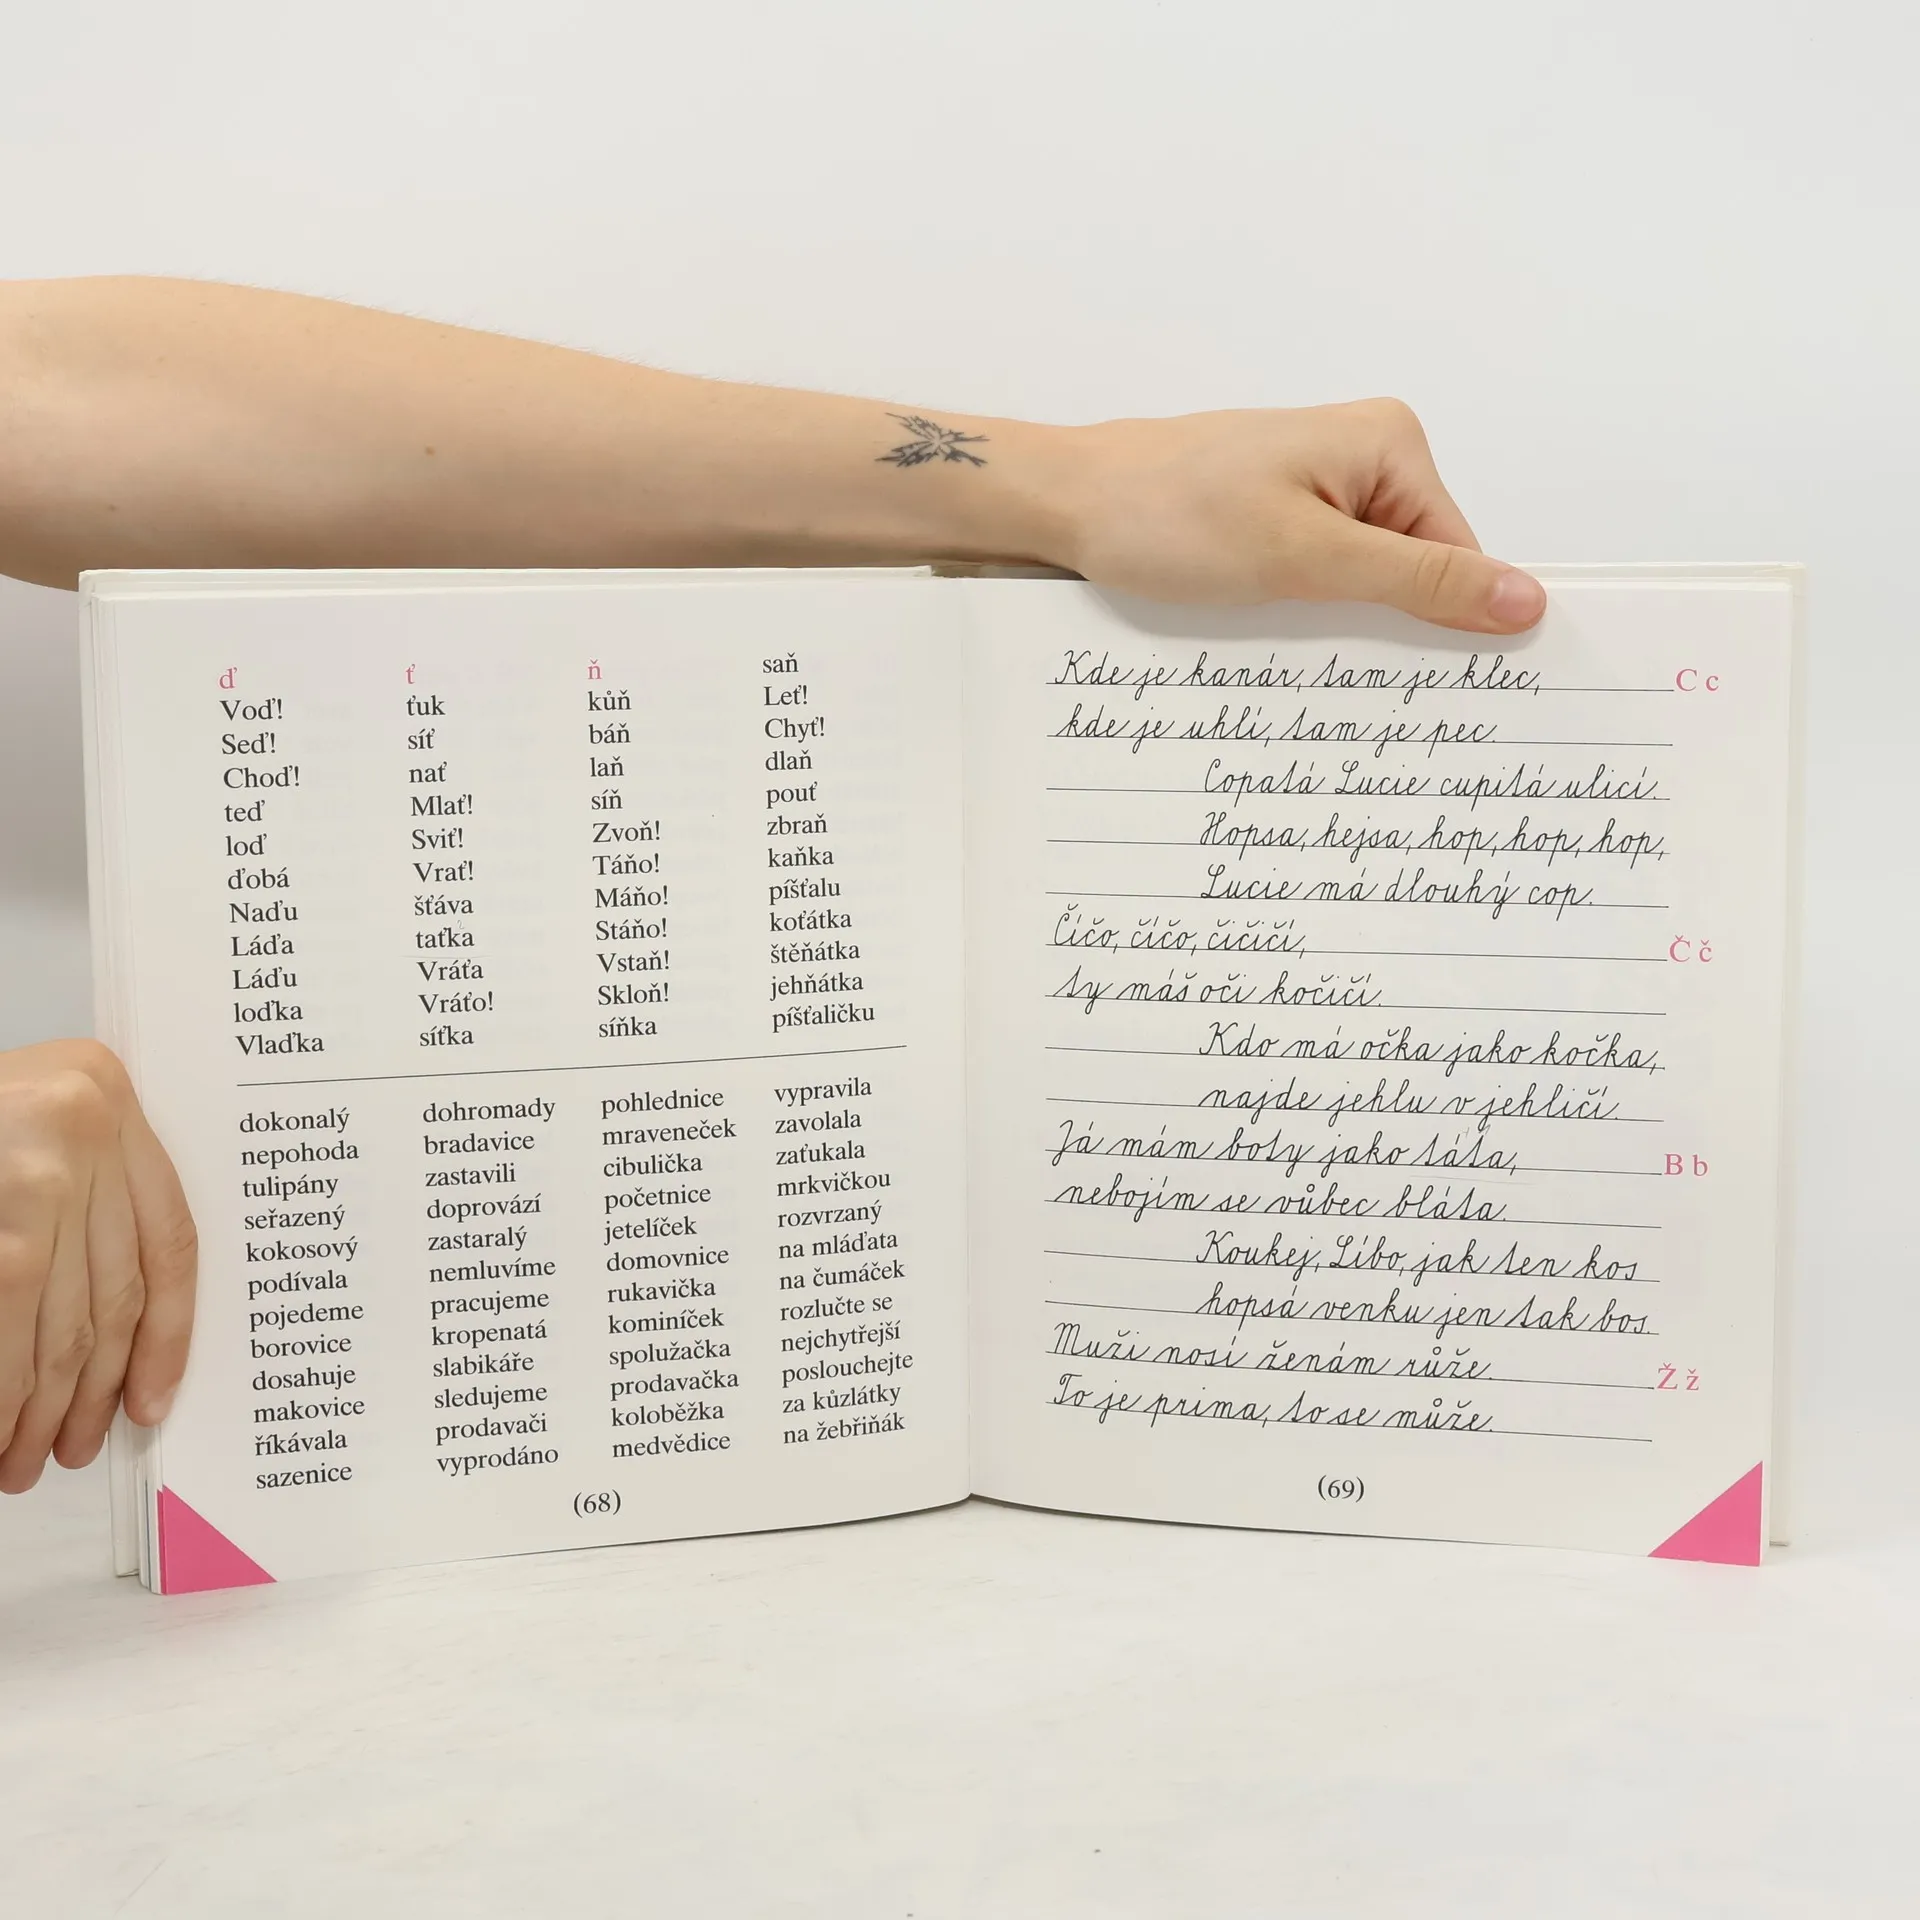 ď ť ň saň
Voď! ťuk kůň Leť!
Seď! síť báň Chyť!
Choď! nať laň dlaň
teď Mlať! síň pouť
loď Sviť! Zvoň! zbraň
ďobá Vrať! Táňo! kaňka
Naďu šťáva Máňo! píšťalu
Láďa taťka Stáňo! koťátka
Láďu Vráťa Vstaň! štěňátka
loďka Vráťo! Skloň! jehňátka
Vlaďka síťka síňka píšťaličku
dokonalý dohromady pohlednice vypravila
nepohoda bradavice mraveneček zavolala
tulipány zastavili cibulička zaťukala
seřazený doprovází početnice mrkvičkou
kokosový zastaralý jetelíček rozvrzaný
podívala nemluvíme domovnice na mláďata
pojedeme pracujeme rukavička na čumáček
borovice kropenatá kominíček rozlučte se
dosahuje slabikáře spolužačka nejchytřejší
makovice sledujeme prodavačka poslouchejte
říkávala prodavači koloběžka za kůzlátky
sazenice vyprodáno medvědice na žebřiňák
(68)
Kde je kanár, tam je klec, C c
kde je uhlí, tam je pec.
Copatá Lucie cupitá ulicí.
Hopsa, hejsa, hop, hop, hop,
Lucie má dlouhý cop.
Číčo, číčo, čičičí, Č č
ty máš oči kočičí.
Kdo má očka jako kočka,
najde jehlu v jehličí.
Já mám boty jako táta, B b
nebojím se vůbec bláta.
Koukej, Líbo, jak ten kos
hopsá venku jen tak bos.
Muži nosí ženám růže. Ž ž
To je prima, to se může.
(69)